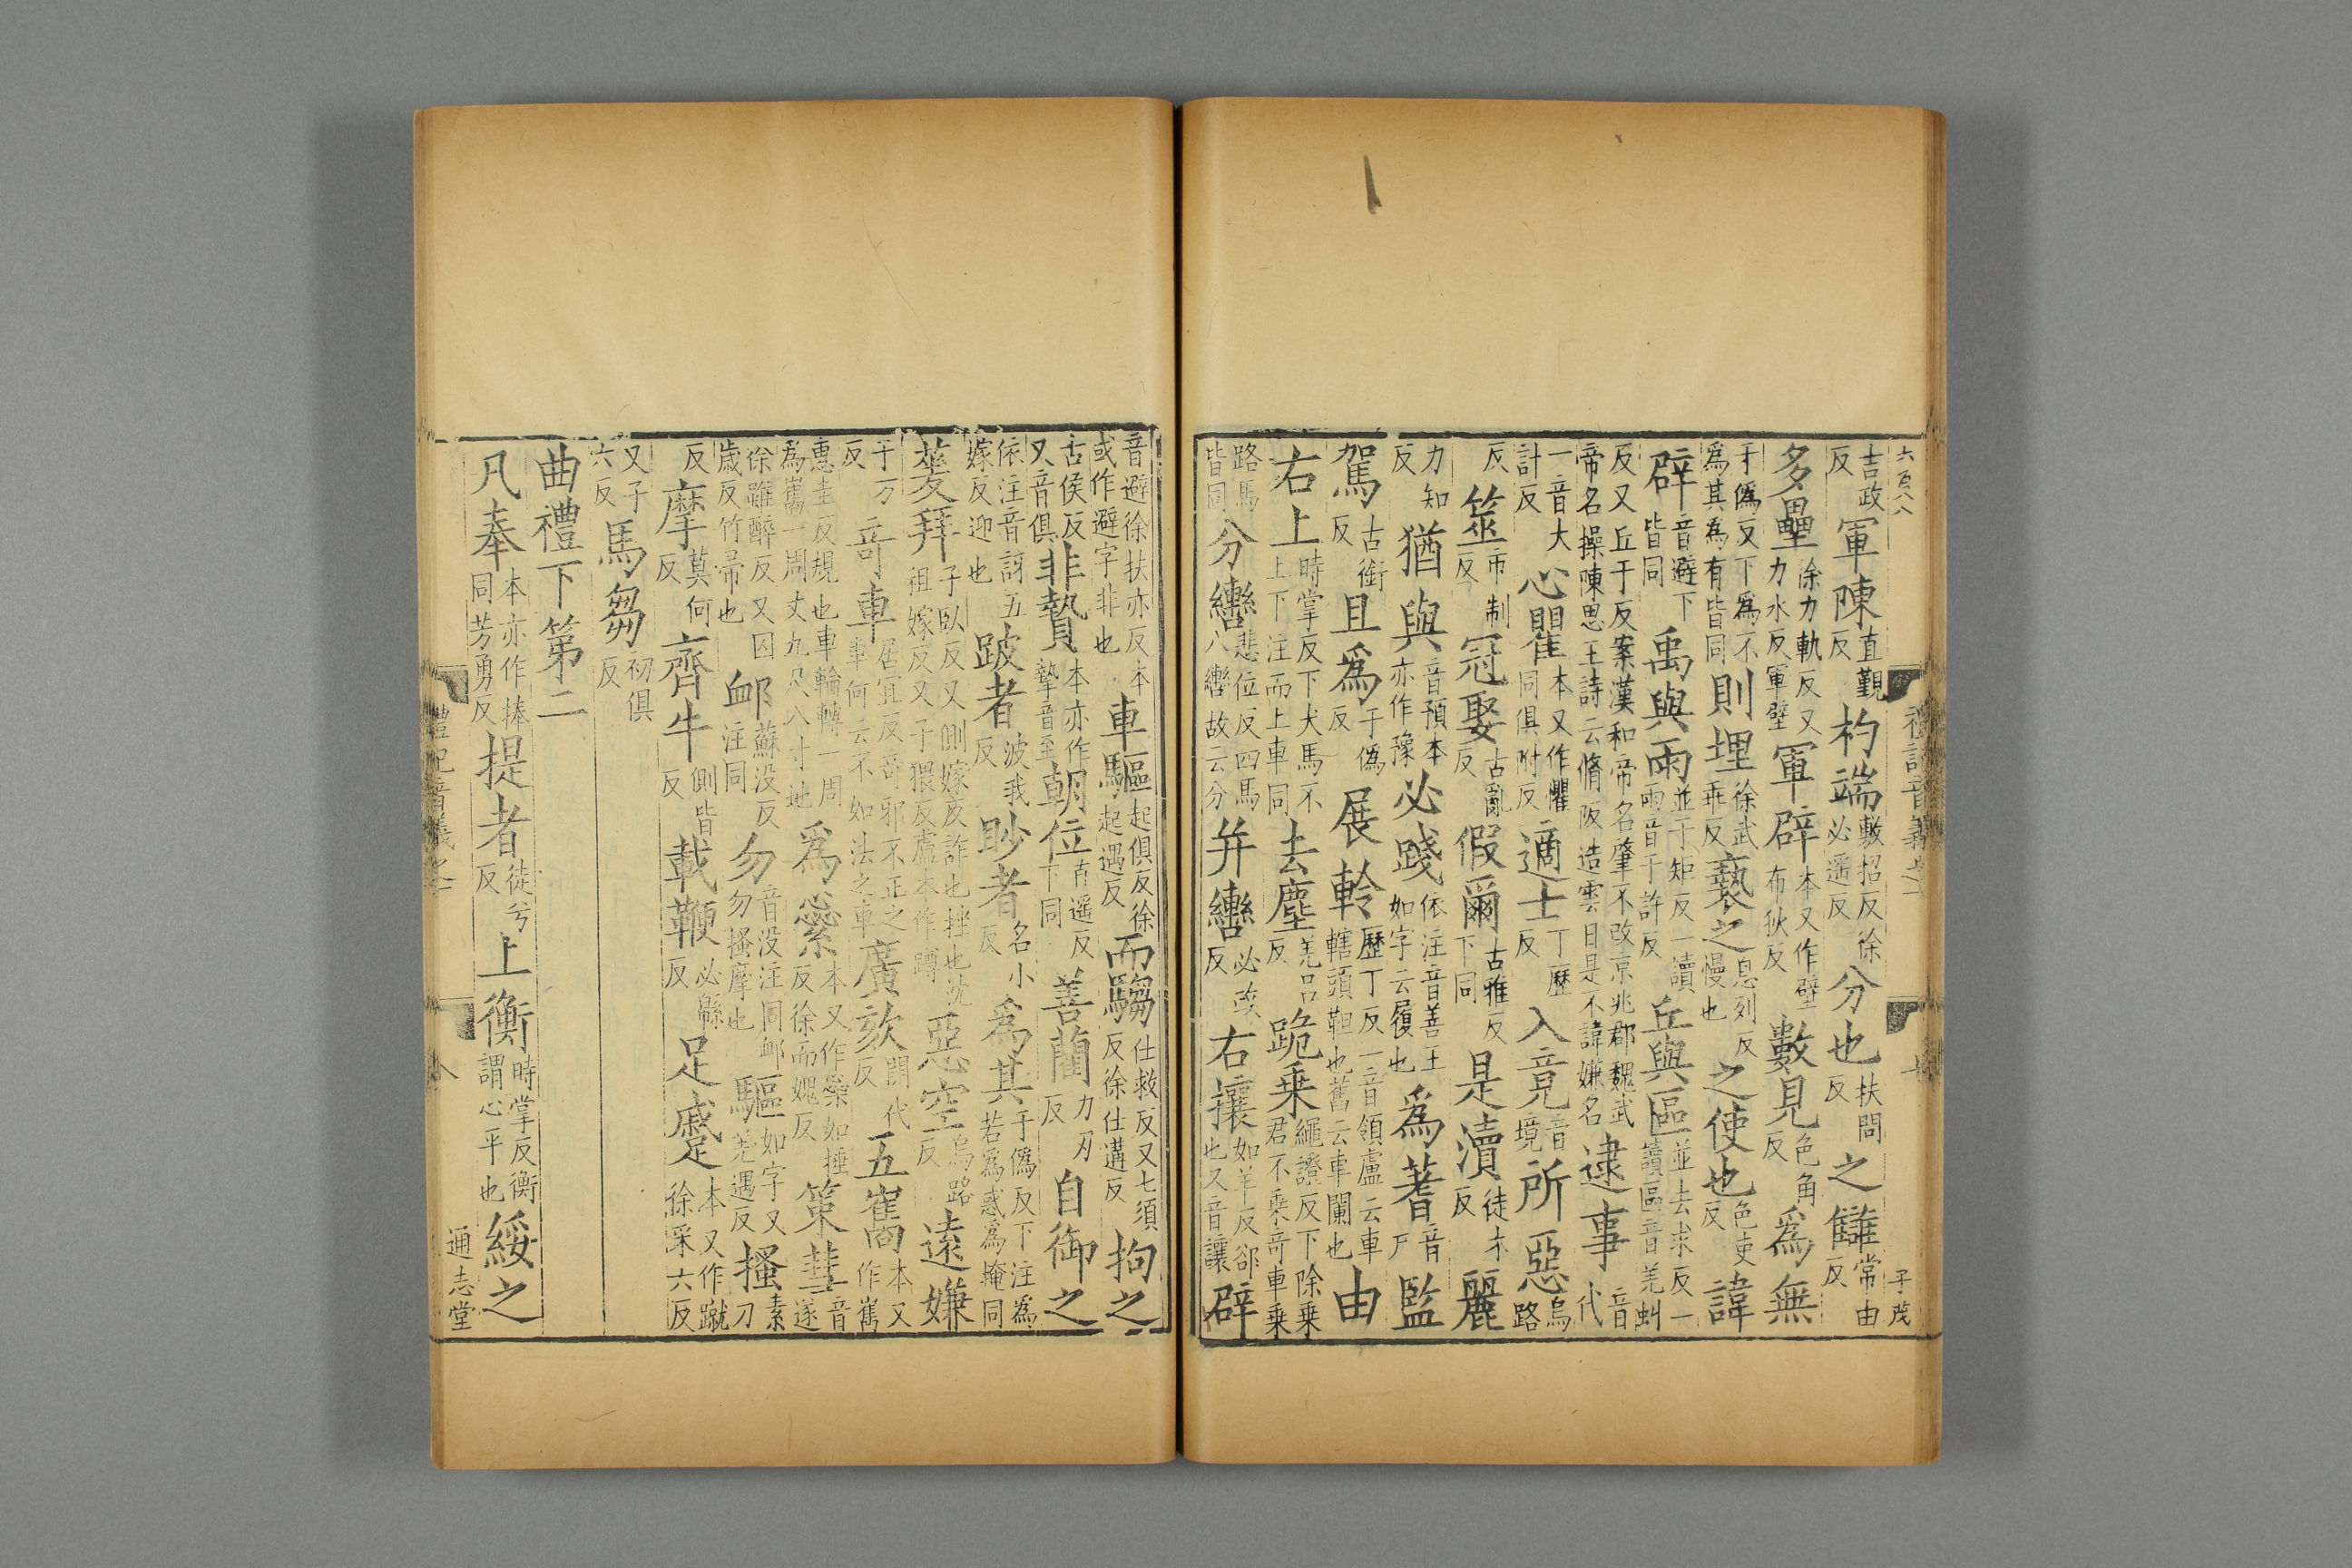 六百八八
禮記音義之一
子茂
吉政反軍陳直覲反杓端敷招反徐必遥反分也扶問反之讎常由反
多壘徐力軌反又力水反軍壁軍辟本又作壁布狄反數見色角反爲無
于僞反下爲不爲其爲有皆同則埋徐武乖反䙝之息列反慢也之使也色吏反諱
辟音避下皆同禹與雨並于矩反一讀雨音于許反丘與區並去求反一讀區音羌虯
反又丘于反案漢和帝名肇不改京兆郡魏武帝名操陳思王詩云脩阪造雲日是不諱嫌名逮事音代
一音大計反心瞿本又作懼同俱附反適士丁歷反入竟音境所惡烏路
反筮市制反冠娶古亂反假爾古雅反下同是瀆徒木反麗
力知反猶與音預本亦作豫必踐依注音善王如字云履也爲蓍音尸監
駕古銜反且爲于僞反展軨歷丁反一音領盧云車轄頭靼也舊云車闌也由
右上時掌反下犬馬不上下注而上車同去塵羌吕反跪乗繩證反下除乗君不乗奇車乗
路馬皆同分轡悲位反四馬八轡故云分并轡必政反右攘如羊反郤也又音讓辟
音避徐扶亦反本或作避字非也車驅起俱反徐起遇反而騶仕救反又七須反徐仕遘反拘之
古侯反又音俱非贄本亦作摯音至朝位直遥反下同善藺力刃反自御之
依注音訝五嫁反迎也跛者波我反眇者名小反爲其于僞反下注爲若爲惑爲掩同
蓌拜子臥反又側嫁反詐也挫也沈祖嫁反又子猥反盧本作蹲惡空烏路反遠嫌
于万反奇車居宜反奇邪不正之車何云不如法之車廣欬開代反五巂本又作雟
惠圭反規也車輪轉一周爲巂一周丈九尺八寸地爲縈本又作蘂如捶反徐而媿反策彗音遂
徐雖醉反又囚歲反竹帚也卹蘇没反注同勿音没注同卹勿搔摩也驅如字又羌遇反搔素刀
反摩莫何反齊牛側皆反載鞭必緜反足蹙本又作蹴徐采六反
又子六反馬芻初俱反
曲禮下第二
凡奉本亦作捧同芳勇反提者徒兮反上衡時掌反衡謂心平也綏之
通志堂